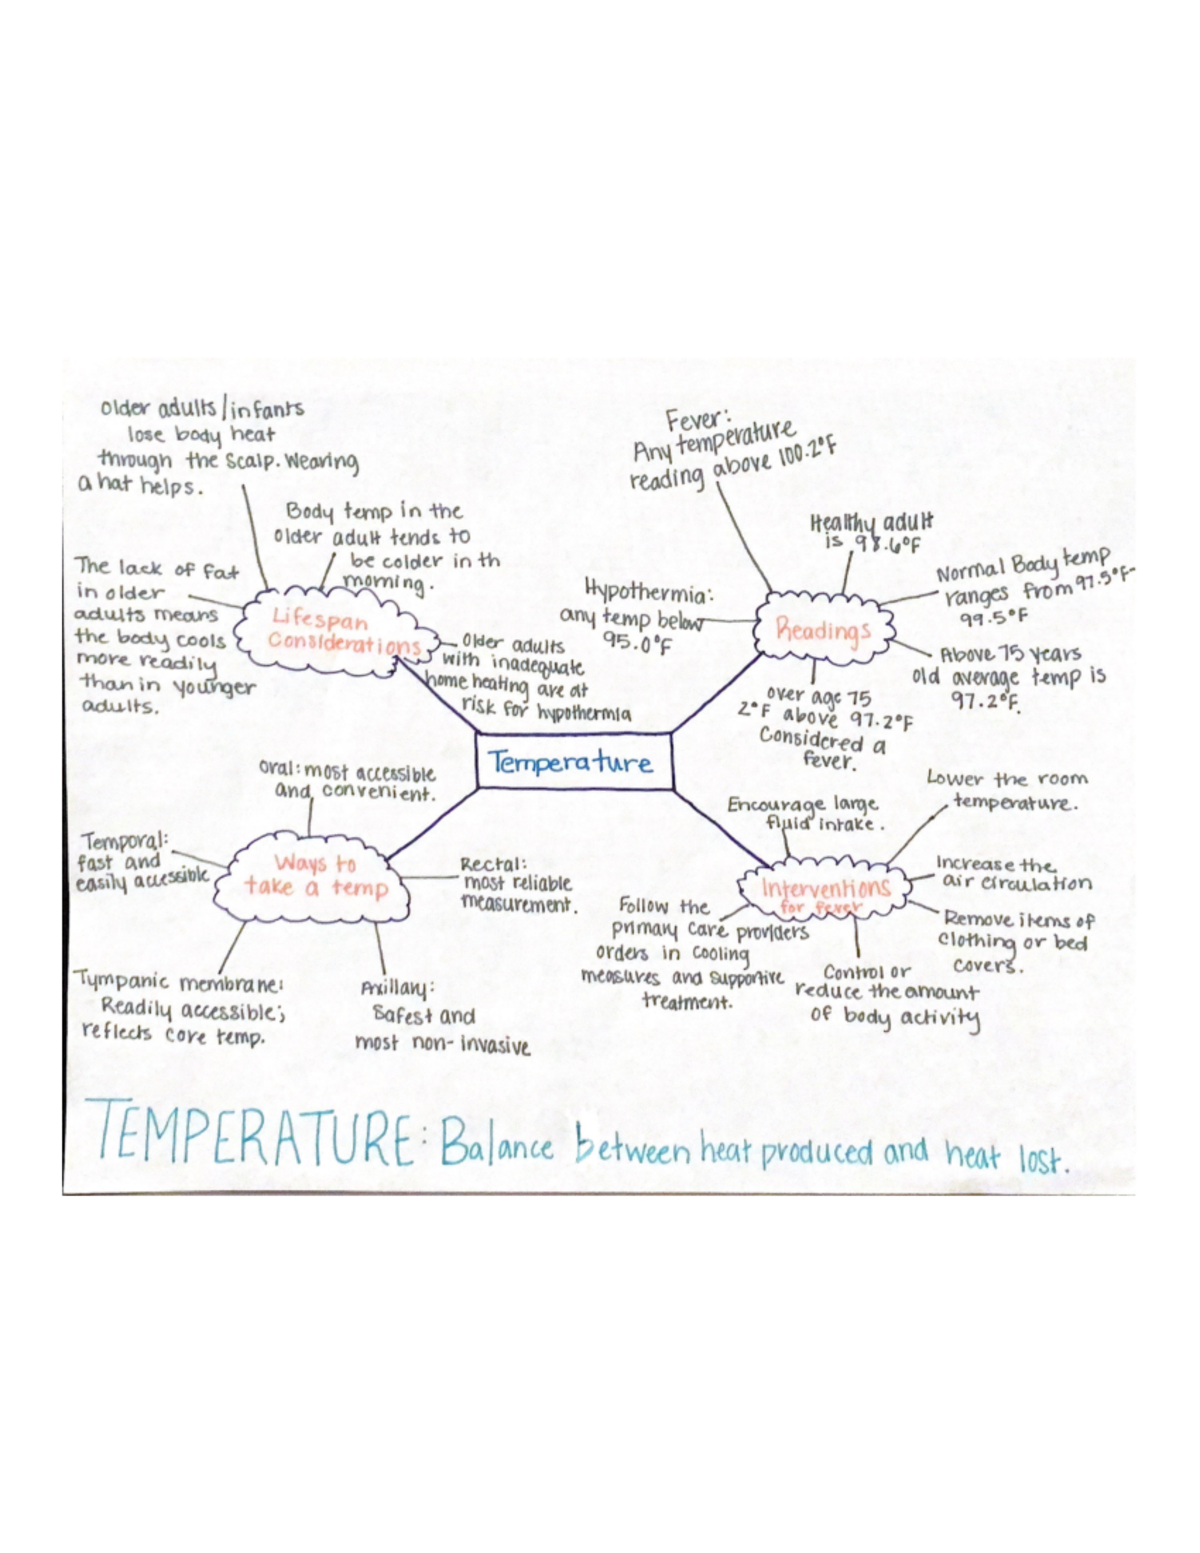 older adults/infants
lose body heat
through the scalp. Wearing
a hat helps.
Body temp in the
older adult tends to
be colder in th
morning.
The lack of fat
in older
adults means
the body cools
more readily
than in younger
adults.
Lifespan
Considerations
Older adults
with inadequate
home heating are at
risk for hypothermia
Fever:
Any temperature
reading above 100.2°F
Healthy adult
is 98.6°F
Hypothermia:
any temp below
95.0°F
Readings
Normal Body temp
ranges from 97.5°F-
99.5°F
Above 75 years
old average temp is
97.2°F.
over age 75
2°F above 97.2°F
Considered a
fever.
Temperature
Oral: most accessible
and convenient.
Temporal:
fast and
easily accessible
Ways to
take a temp
Rectal:
most reliable
measurement.
Tympanic membrane:
Readily accessible;
reflects core temp.
Axillary:
Safest and
most non-invasive
Encourage large
fluid intake.
Lower the room
temperature.
Interventions
for fever
Increase the
air circulation
Remove items of
clothing or bed
covers.
Follow the
primary care providers
orders in cooling
measures and supportive
treatment.
Control or
reduce the amount
of body activity
TEMPERATURE: Balance between heat produced and heat lost.